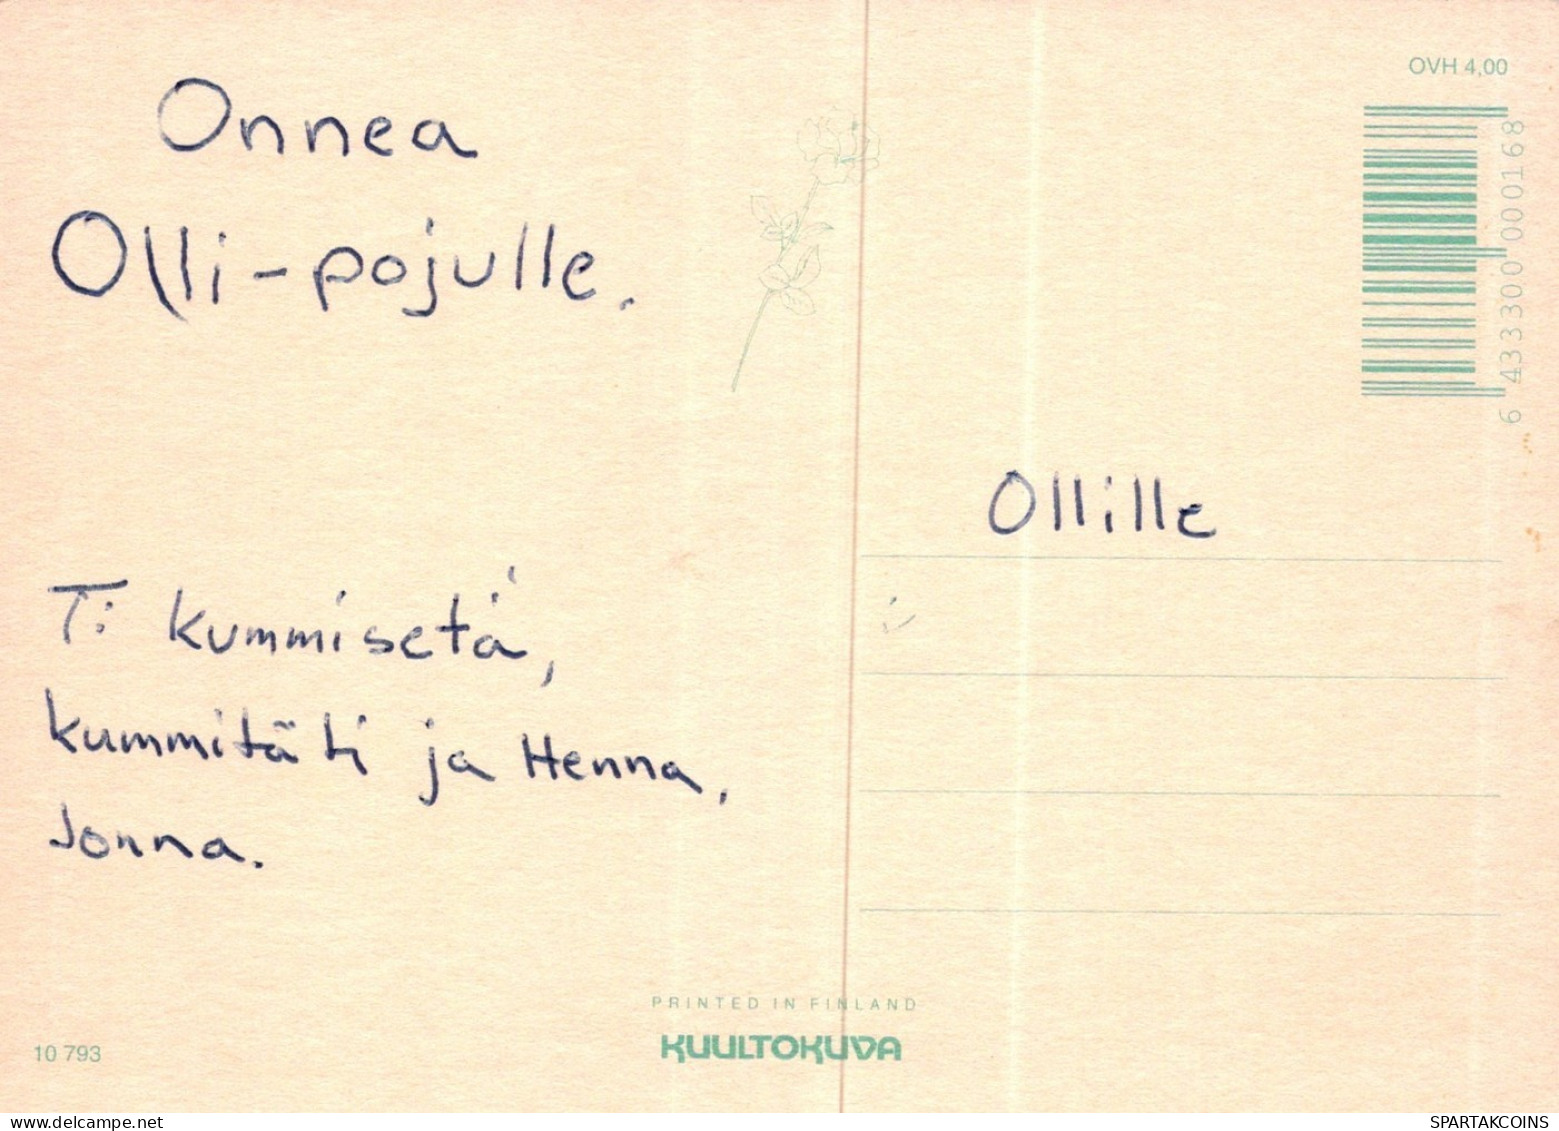 Onnea
Olli-pojulle.
T: kummisetä,
kummitäti ja Henna,
Jonna.
10 793
PRINTED IN FINLAND
KUULTOKUVA
OVH 4,00
6 433300 000168
Ollille
www.delcampe.net
SPARTAKCOINS